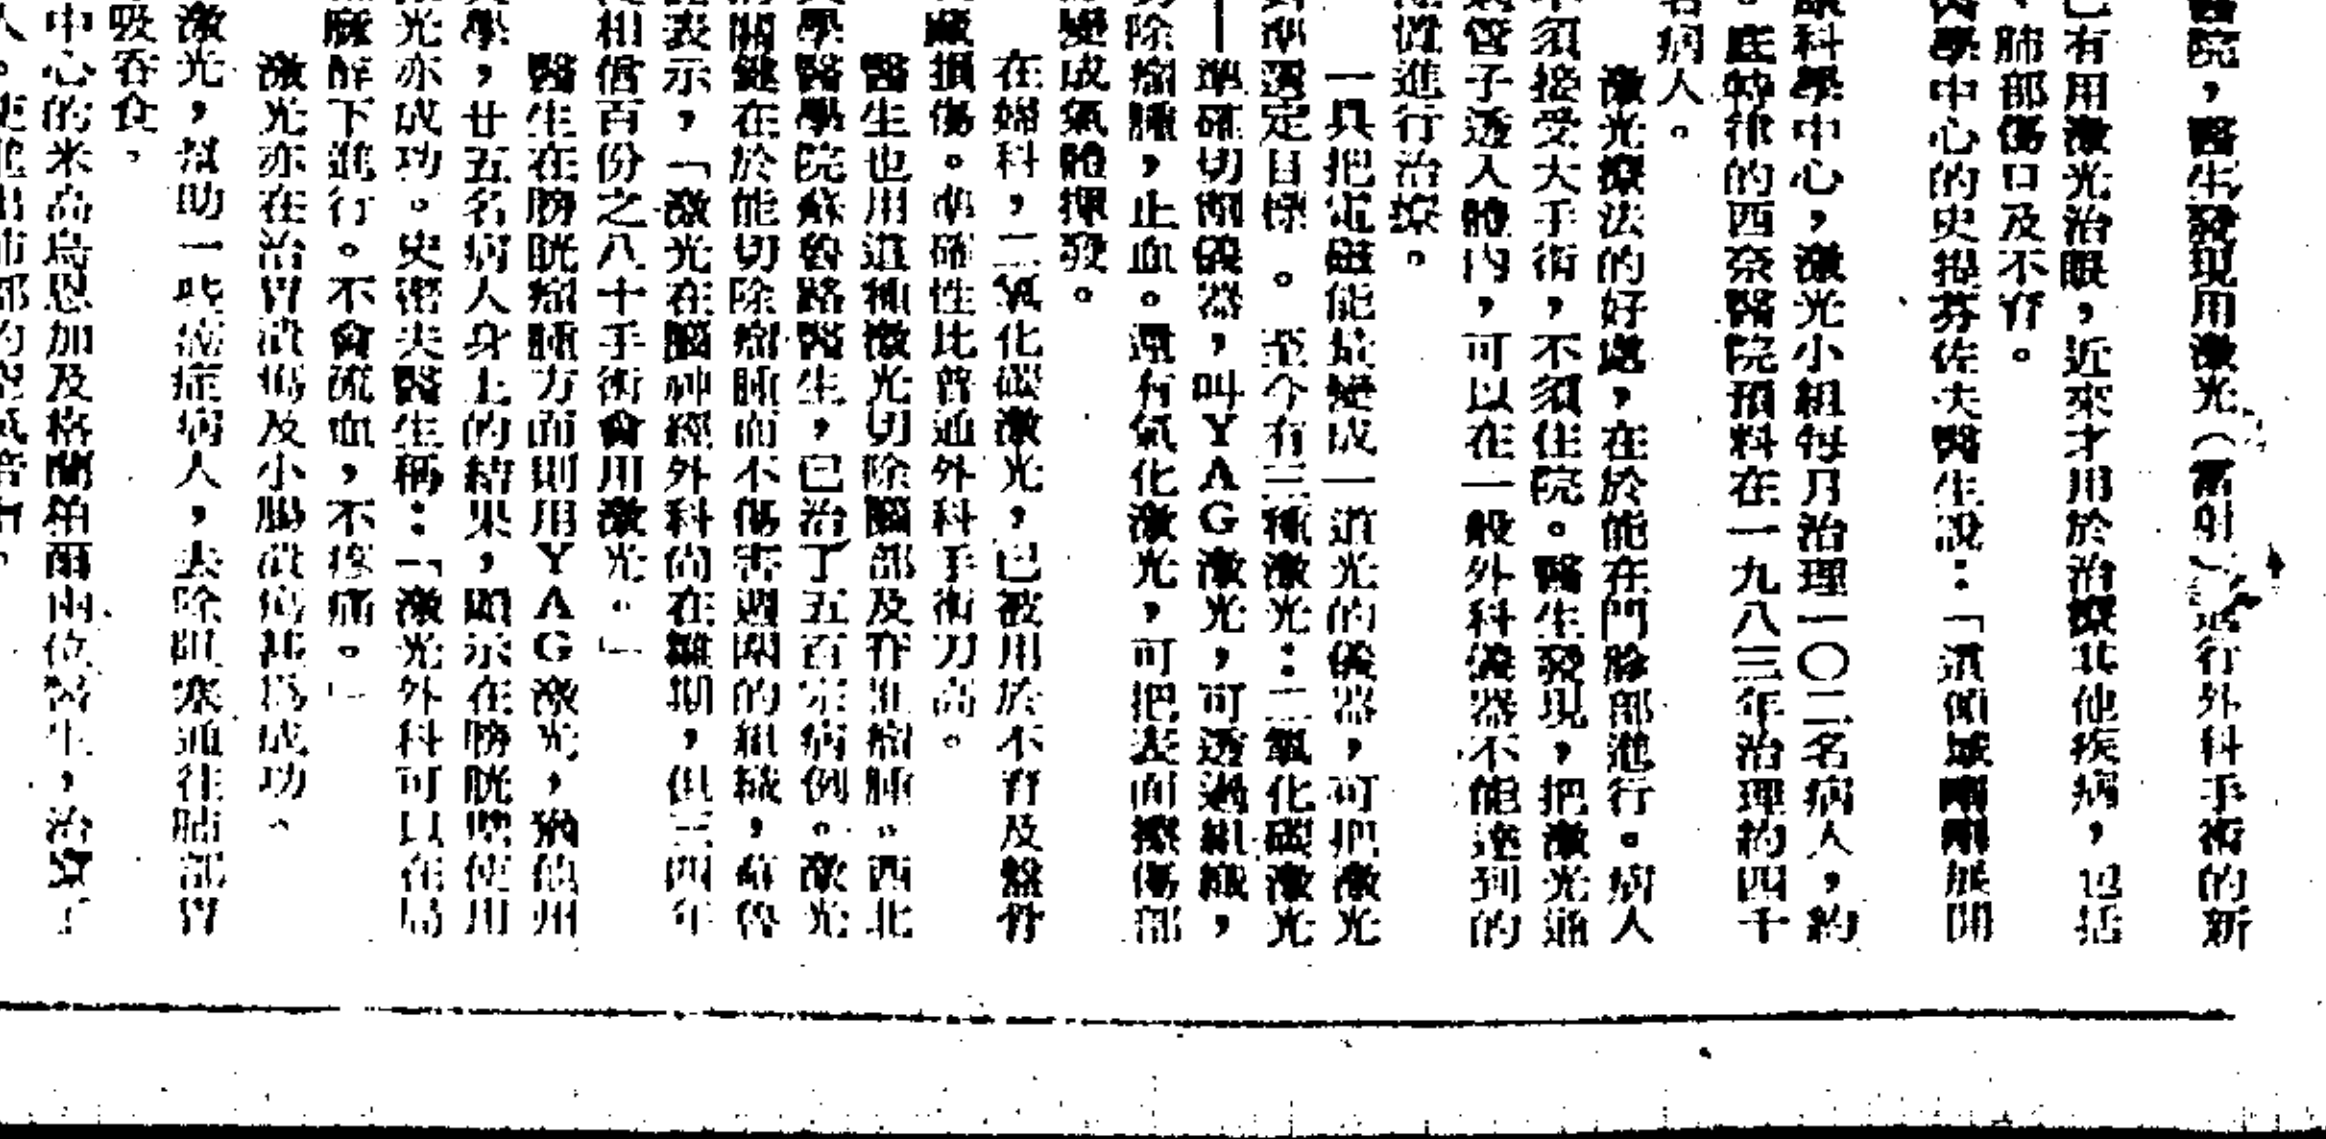 醫院，醫生發現用激光（雷射）進行外科手術的新
已有用激光治眼，近來才用於治療其他疾病，包括
、肺部傷口及不育。
醫學中心的史提芬佐夫醫生說：「這領域剛剛展開
科學中心，激光小組每月治理一〇二名病人，約
。底特律的西奈醫院預料在一九八三年治理約四千
名病人。
激光療法的好處，在於能在門診部進行。病人
不須接受大手術，不須住院。醫生發現，把激光通
過管子透入體內，可以在一般外科儀器不能達到的
位置進行治療。
一具把電磁能量變成一道光的儀器，可把激光
對準選定目標。至今有三種激光：二氧化碳激光
—準確切割儀器，叫ＹＡＧ激光，可透過組織，
切除瘤腫，止血。還有氣化激光，可把表面擦傷部
變成氣體揮發。
在婦科，二氧化碳激光，已被用於不育及盤骨
損傷。準確性比普通外科手術刀高。
醫生也用這種激光切除腦部及脊椎瘤腫。西北
學醫學院蘇魯路醫生，已治了五百宗病例。激光
關鍵在於能切除瘤腫而不傷害週圍的組織，蘇魯
表示，「激光在腦神經外科尚在雛期，但三四年
相信百份之八十手術會用激光。」
醫生在膀胱瘤腫方面則用ＹＡＧ激光，猶他州
學，廿五名病人身上的結果，顯示在膀胱壁使用
光亦成功。史密夫醫生稱：「激光外科可以在局
麻醉下進行。不會流血，不疼痛。」
激光亦在治胃潰瘍及小腸潰瘍甚為成功。
激光，幫助一些癌症病人，去除阻塞通往肺部胃
吸吞食。
中心的米高烏恩加及格蘭柏爾兩位醫生，治療了